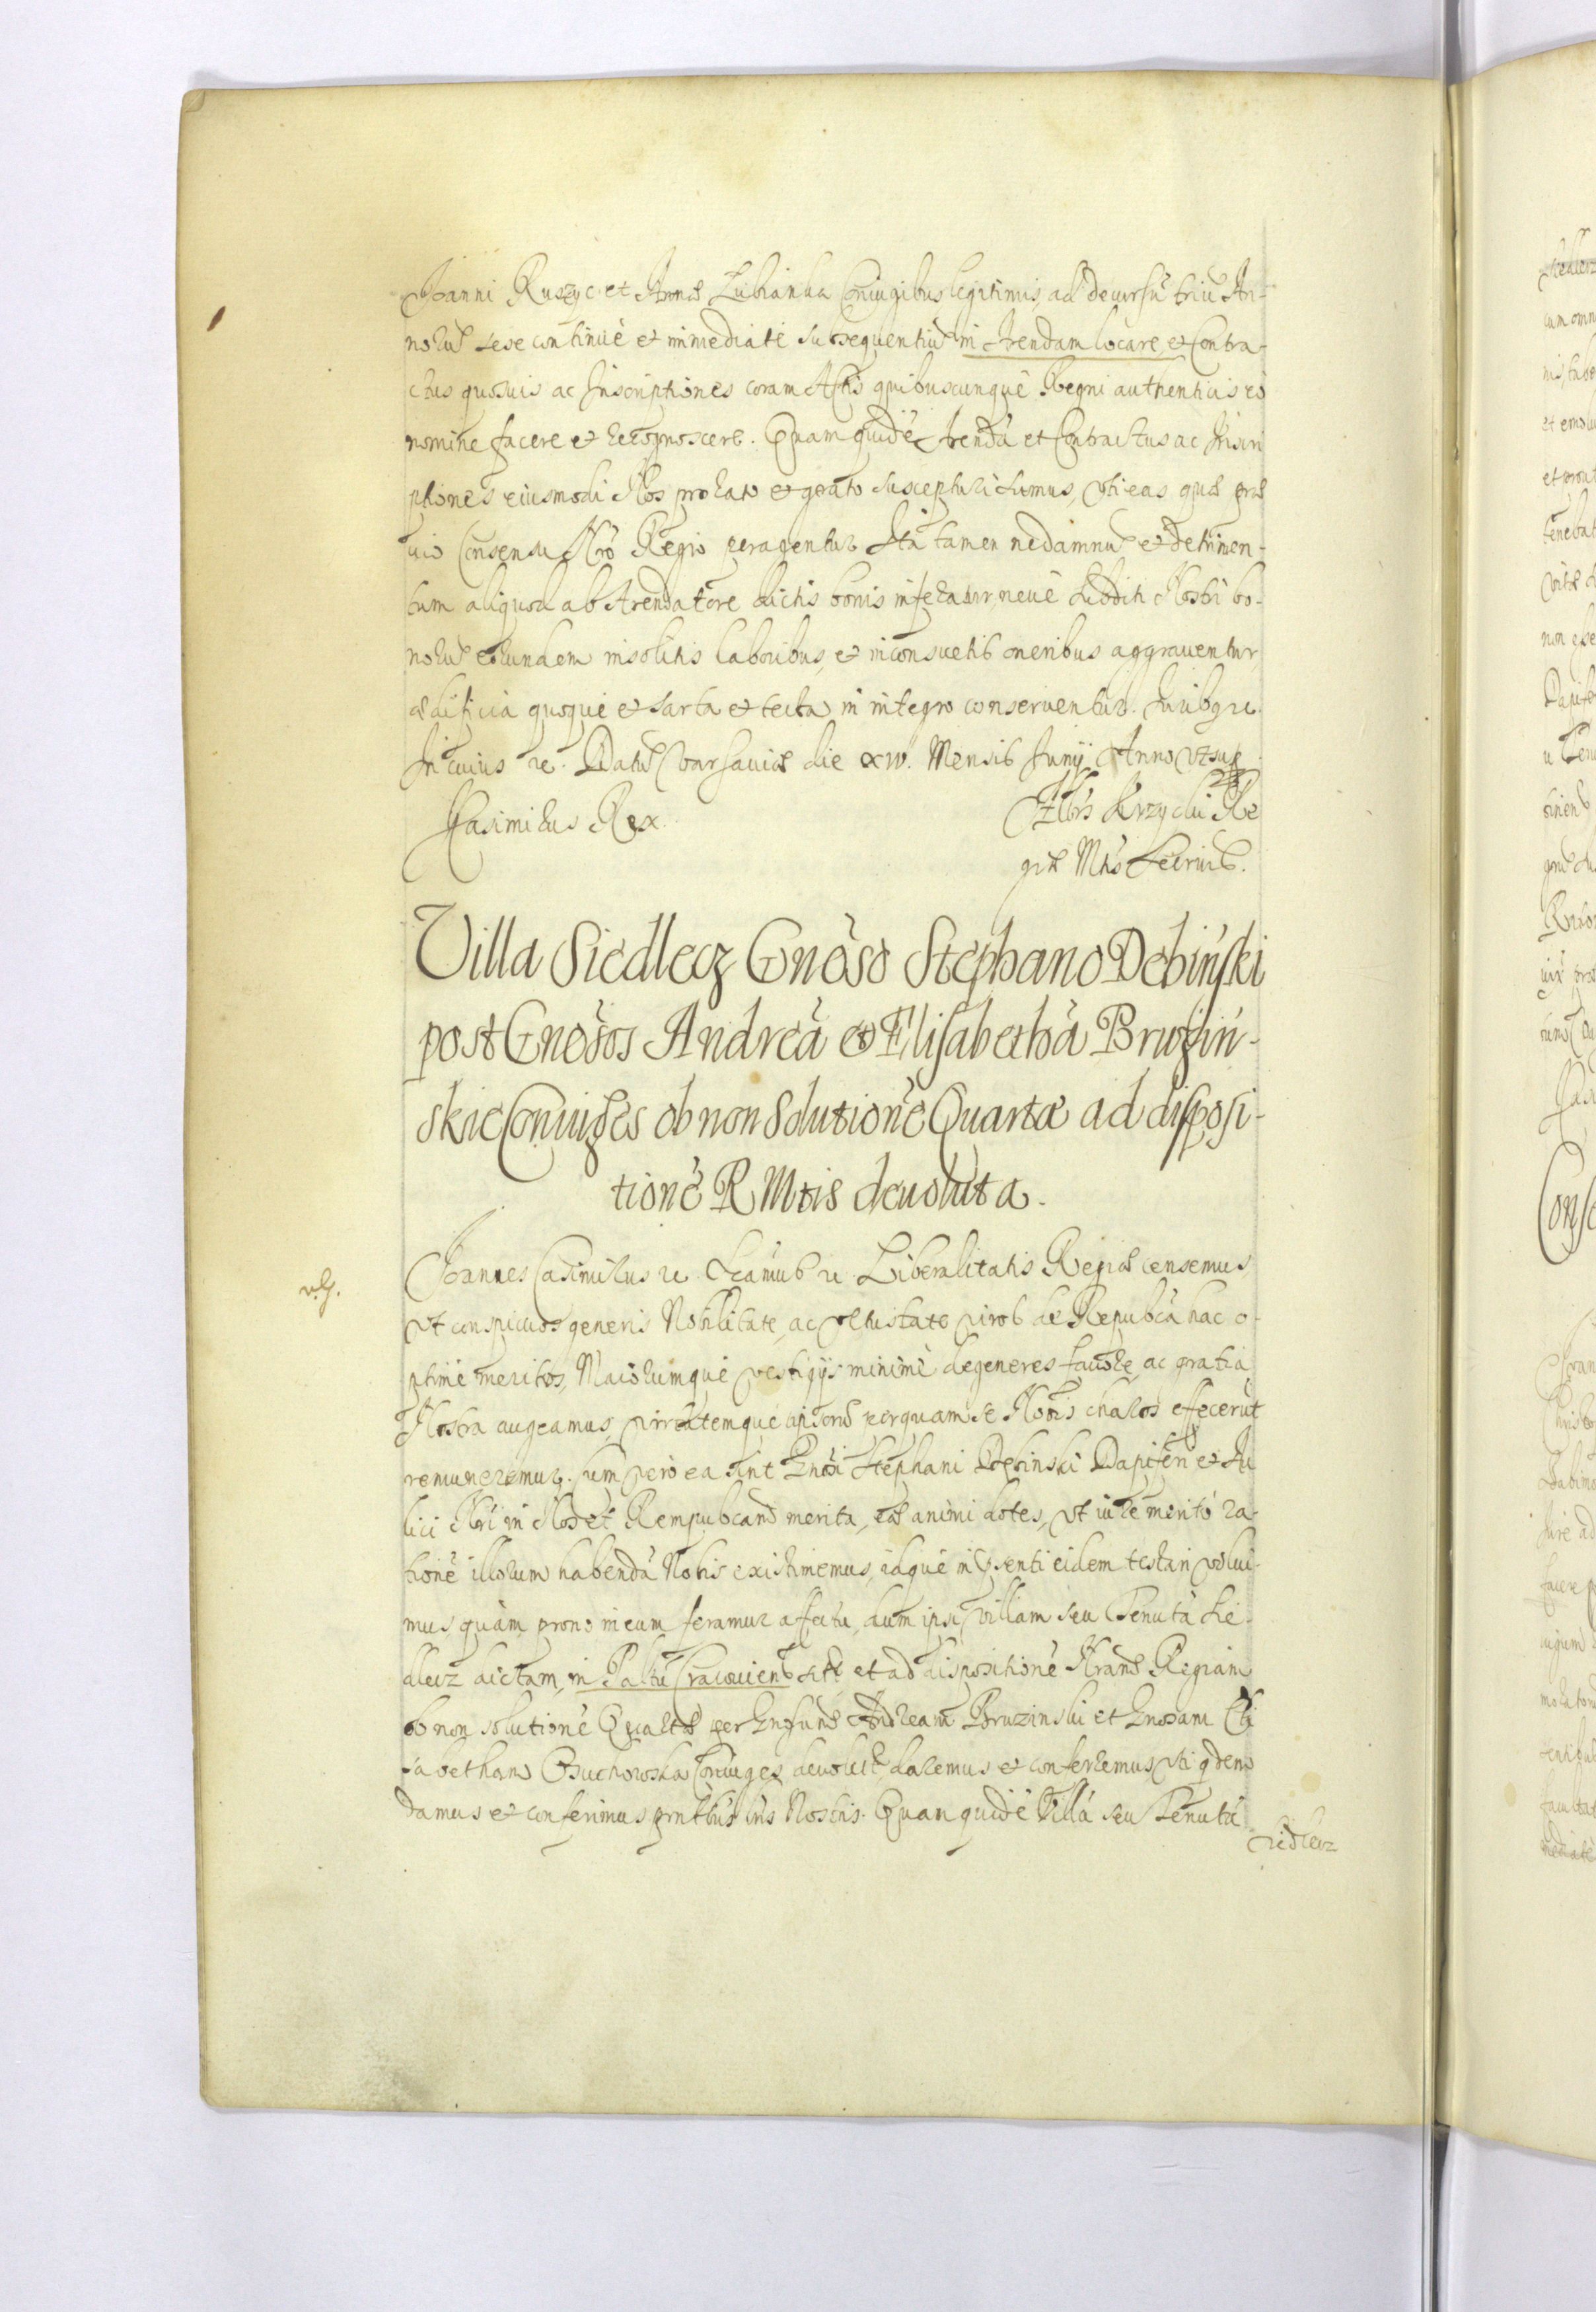 Joanni Ruszyc et Annæ Lubianka Coniugibus legitimis, ad decursū triū An-
noru sese continuè et immediatè subsequentiū in Arendam locare, et Contra-
ctus quosuis ac Inscriptiones coram Actis quibuscunquè Regni authenticis eò
nomine facere et recognoscere. Quam quidē Arendā et Contractus ac Inscri
ptiones eiusmodi Nos pro rato et grato suscepturi sumus, vti eas quæ præ
uio Consensu Nrō Regio peragentur Ita tamen ne damnū et detrimen-
tum aliquod ab Arendatore dictis bonis inferatur, neuè Subditi Nostri bo-
noru eorundem insolitis laboribus, et inconsuetis oneribus aggrauentur,
ædificia quoquè et sarta et tecta in integro conseruentur. Iuribq re.
In cuius re. Datū Varsauiæ die xiv. Mensis Junij Anno vt sup
Casimirus Rex. Albrs Krzycki Re
giæ Mtis Secrius.
Villa Siedlecz Gnōso Stephano Debiński
post Gnōsos Andreā et Elisabethā Bruzin-
skie Coniuges ob non Solutionē Quartæ ad disposi-
tionē R Mtis deuoluta.
Joannes Casimirus re. Ream9 re. Liberalitatis Regiæ censemus
Vt conspicuos generis Nobilitate, ac vetustate viros de Repubcā hac o-
ptimè meritos, Maiorumquè vestigijs minimè degeneres fauore, ac gratia
Nostra augeamus, virtutemquè ipsoru perquam se Nobis charos effecerūt
remuneremur. Cum verò ea sint Gnōsi Stephani Debinski Dapiferi et Au
lici Nri in Nos et Rempubcam merita, eæ animi dotes, vt iure meritò ra-
tionē illorum habendā Nobis existimemus, idquè in psenti eidem testari volui-
mus, quàm prono in eum feramur affectu, dum ipsi Villam seu Tenutā Sie-
dlecz dictam, in Paltū Cracouiensi sitā et ad dispositionē Nram Regiam
ob non solutionē Quartæ per Gnōsum Andream Bruzinski et Gnōsam Eli
sabetham Osuchowska Coniuges deuolutā daremus et conferremus, vti qdem
damus et conferimus pntibus lris Nostris. Quam quidē Villā seu Tenutā
Siedlecz